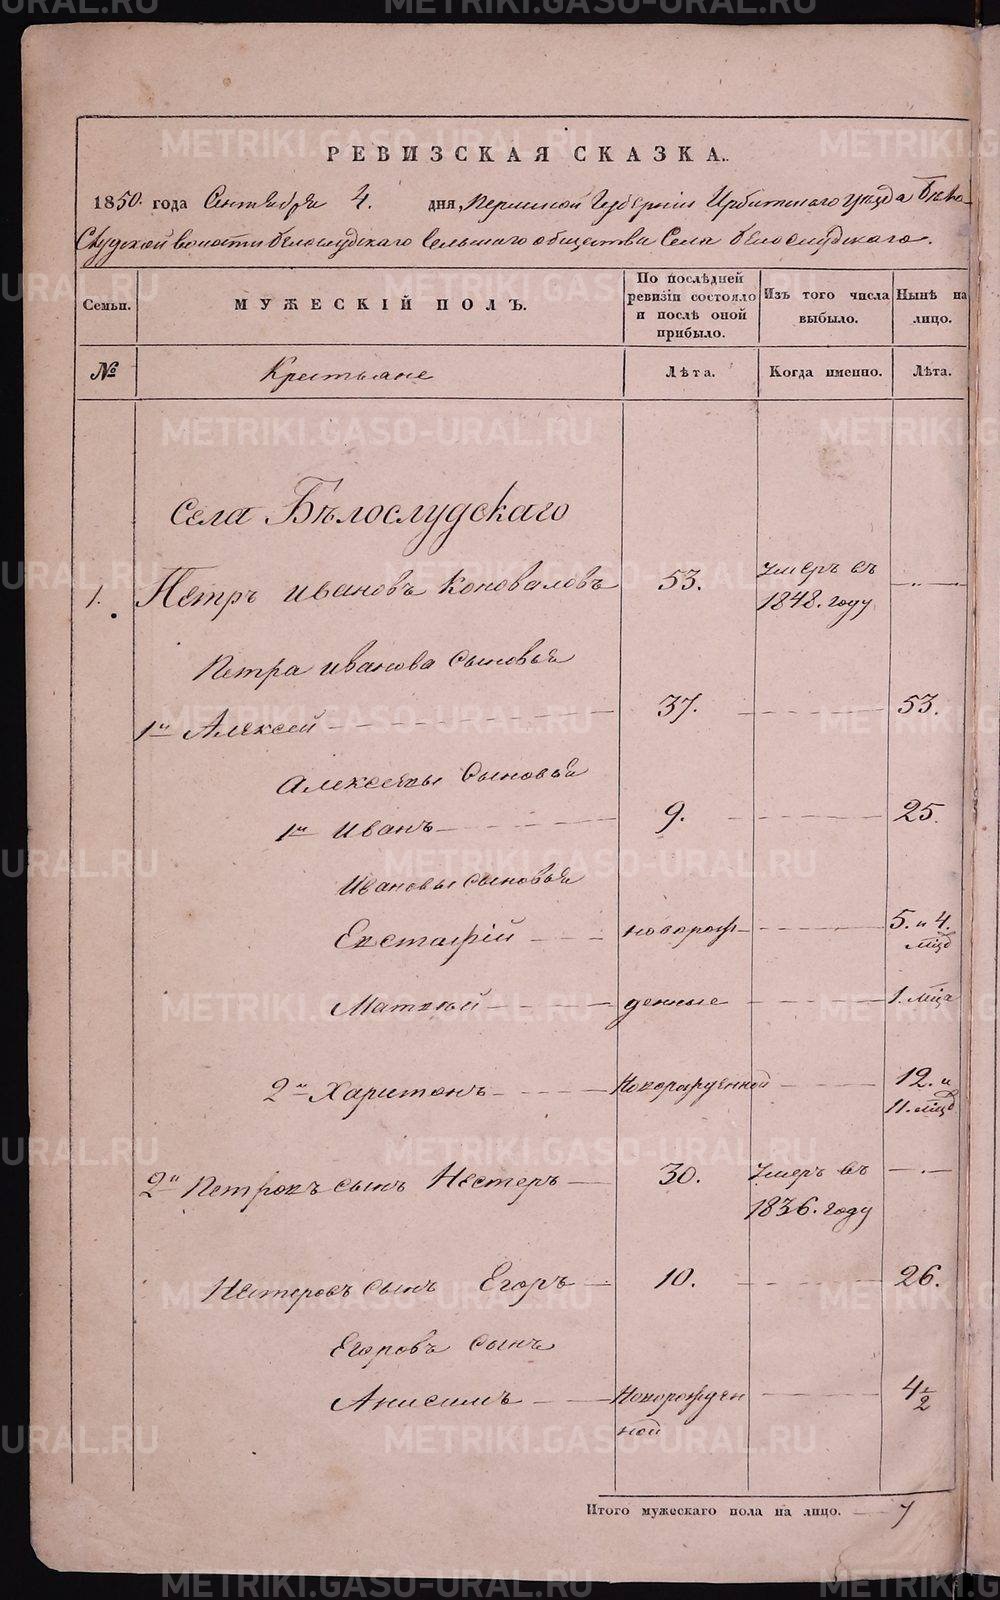 РЕВИЗСКАЯ СКАЗКА.
1850 года Сентября 4. дня, Пермской Губерніи Ирбитскаго уезда Бело-
Слудской волости Белослудскаго Сельскаго общества Села Белослудскаго.
Семьи.
МУЖЕСКІЙ ПОЛЪ.
По послѣдней
ревизіи состояло
и послѣ оной
прибыло.
Изъ того числа
выбыло.
Нынѣ на
лицо.
№
Крестьяне
Лѣта.
Когда именно.
Лѣта.
Села Бѣлослудскаго
1. Петръ Ивановъ Коноваловъ 53. Умеръ въ
1848. году
Петра Иванова сыновья
1й Алексей 37. 53.
Алексеевы сыновья
1й Иванъ 9. 25.
Ивановы сыновья
Евстафій новорож- 5. и 4.
мѣцъ
Матвей денные 1. мѣца
2й Харитонъ Новорожденной 12. и
11. мѣцъ
2й Петровъ сынъ Нестеръ 30. Умеръ въ
1836. году
Нестеровъ сынъ Егоръ 10. 26.
Егоровъ сынъ
Анисимъ Новорожден 4 1/2
ной
Итого мужескаго пола на лицо. 7
METRIKI.GASO-URAL.RU